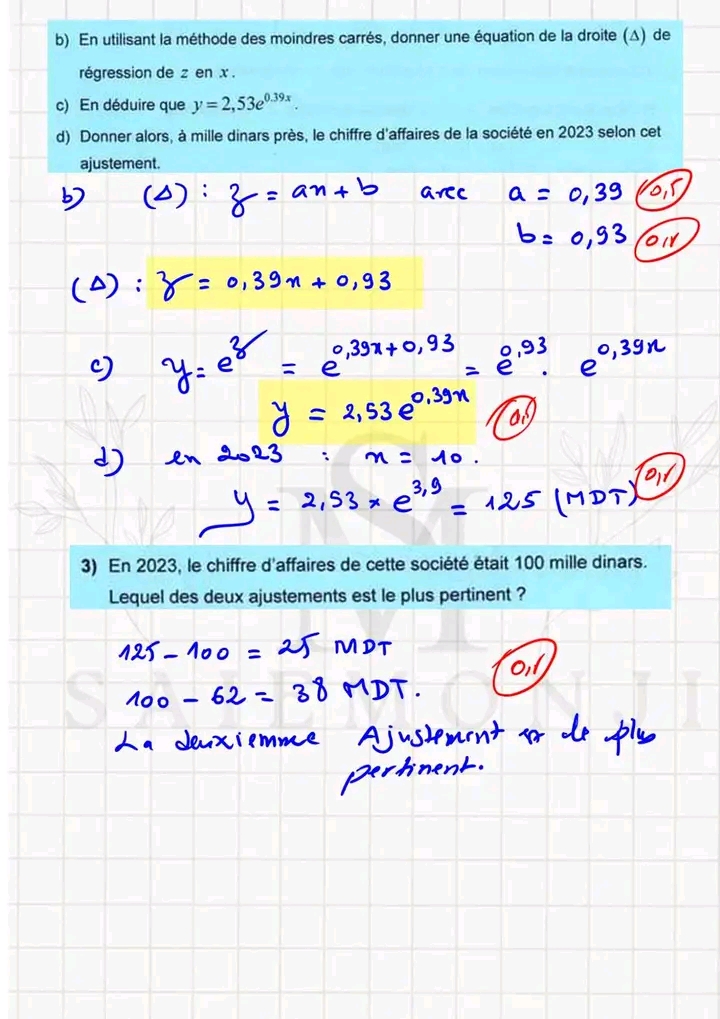 b) En utilisant la méthode des moindres carrés, donner une équation de la droite (Δ) de
régression de z en x.
c) En déduire que y = 2,53e^{0.39x}.
d) Donner alors, à mille dinars près, le chiffre d'affaires de la société en 2023 selon cet
ajustement.
b) (Δ) : z = ax + b avec a = 0,39 0,5
b = 0,93 0,5
(Δ) : z = 0,39x + 0,93
c) y = e^z = e^{0,39x+0,93} = e^{0,93} . e^{0,39x}
y = 2,53 e^{0,39x} 0,5
d) en 2023 : x = 10.
y = 2,53 × e^{3,9} = 125 (MDT) 0,5
3) En 2023, le chiffre d'affaires de cette société était 100 mille dinars.
Lequel des deux ajustements est le plus pertinent ?
125 - 100 = 25 MDT
100 - 62 = 38 MDT. 0,5
SALEM ONJI
La deuxiemme Ajustement est le plus
pertinent.